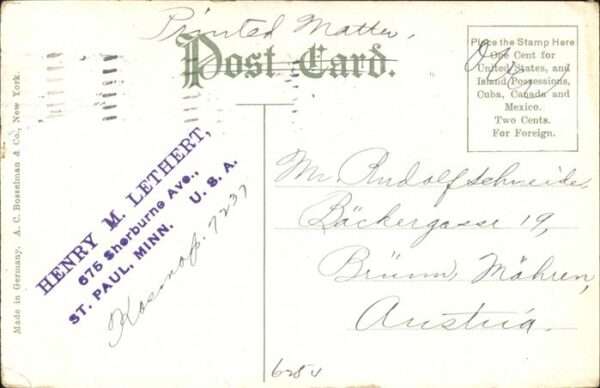 Printed Matter.
Post Card.
Place the Stamp Here
One Cent for
United States, and
Island Possessions,
Cuba, Canada and
Mexico.
Two Cents.
For Foreign.
Made in Germany. A. C. Bosselman & Co., New York.
HENRY M. LETHERT,
675 Sherburne Ave.,
ST. PAUL, MINN. U. S. A.
7237
Mr. Rudolf Schneider
Bäckergasse 19,
Brünn, Mähren,
Austria.